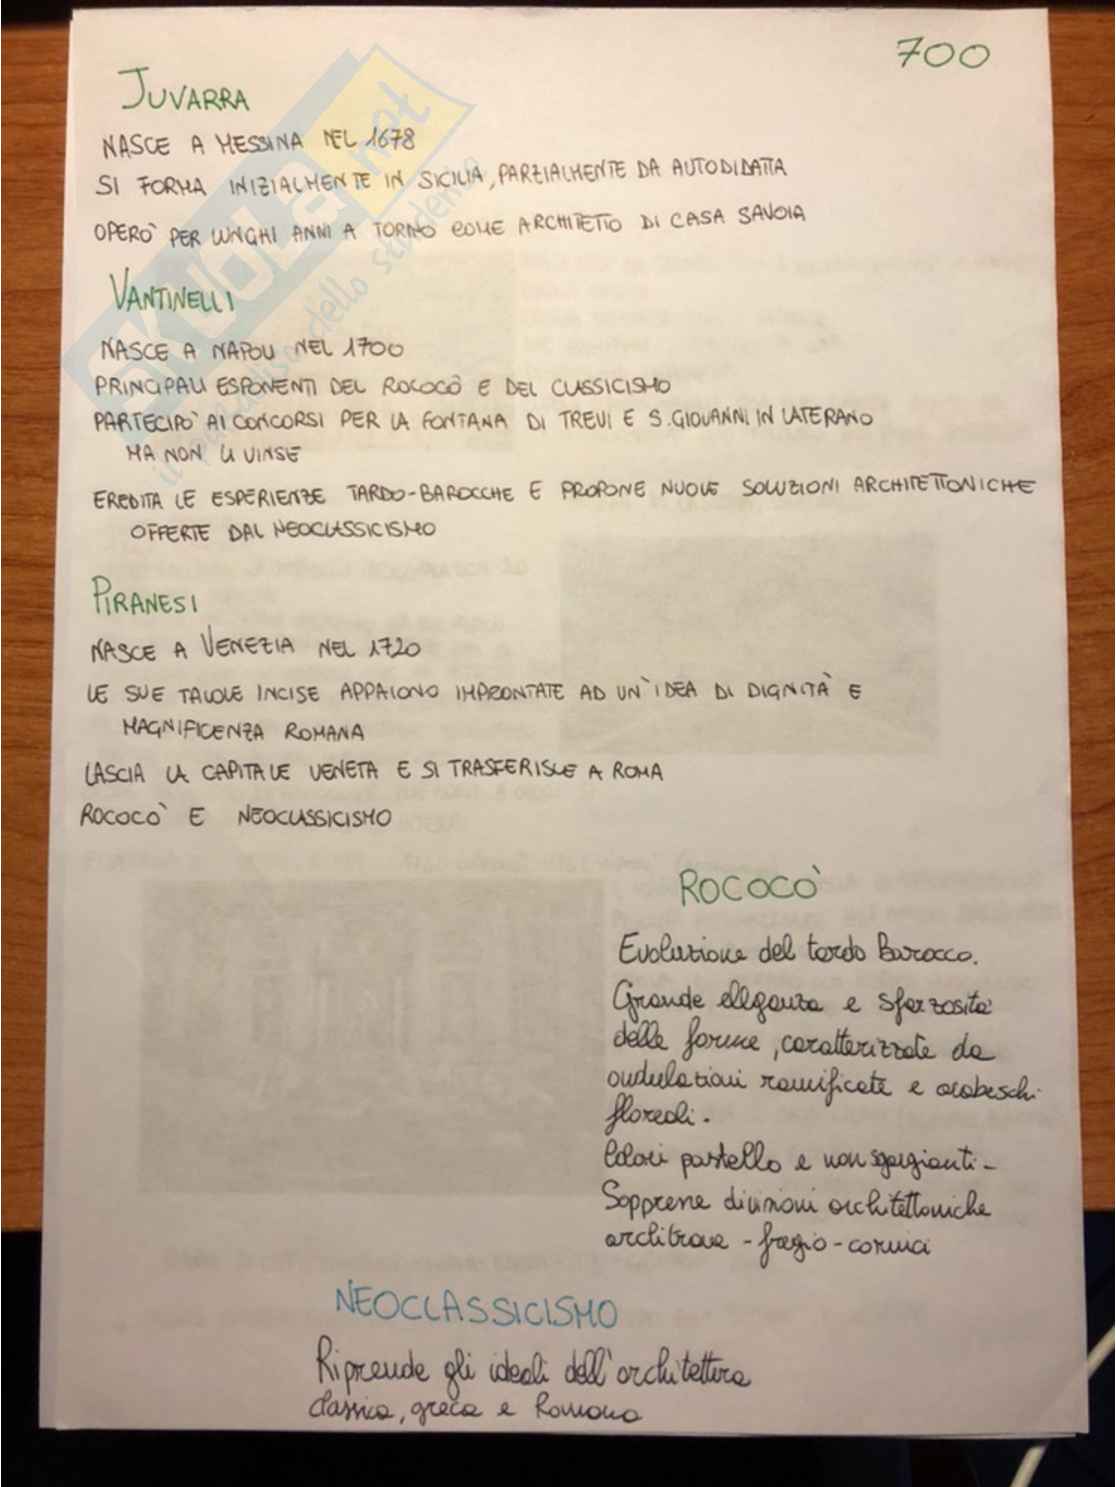 700
JUVARRA
NASCE A MESSINA NEL 1678
SI FORMA INIZIALMENTE IN SICILIA, PARZIALMENTE DA AUTODIDATTA
OPERÒ PER LUNGHI ANNI A TORINO COME ARCHITETTO DI CASA SAVOIA
VANTINELLI
NASCE A NAPOLI NEL 1700
PRINCIPALI ESPONENTI DEL ROCOCÒ E DEL CLASSICISMO
PARTECIPÒ AI CONCORSI PER LA FONTANA DI TREVI E S. GIOVANNI IN LATERANO
MA NON LI VINSE
EREDITA LE ESPERIENZE TARDO-BAROCCHE E PROPONE NUOVE SOLUZIONI ARCHITETTONICHE
OFFERTE DAL NEOCLASSICISMO
PIRANESI
NASCE A VENEZIA NEL 1720
LE SUE TAVOLE INCISE APPAIONO IMPRONTATE AD UN'IDEA DI DIGNITÀ E
MAGNIFICENZA ROMANA
LASCIA LA CAPITALE VENETA E SI TRASFERISCE A ROMA
ROCOCÒ E NEOCLASSICISMO
ROCOCÒ
Evoluzione del tardo Barocco.
Grande eleganza e sfarzosità
delle forme, caratterizzate da
ondulazioni ramificate e arabeschi
floreali.
Colori pastello e non sgargianti-
Sopprene divisioni architettoniche
architrave - fregio - cornici
NEOCLASSICISMO
Riprende gli ideali dell'architettura
classica, greca e Romana
SKUOLA.net
il paradiso dello studente